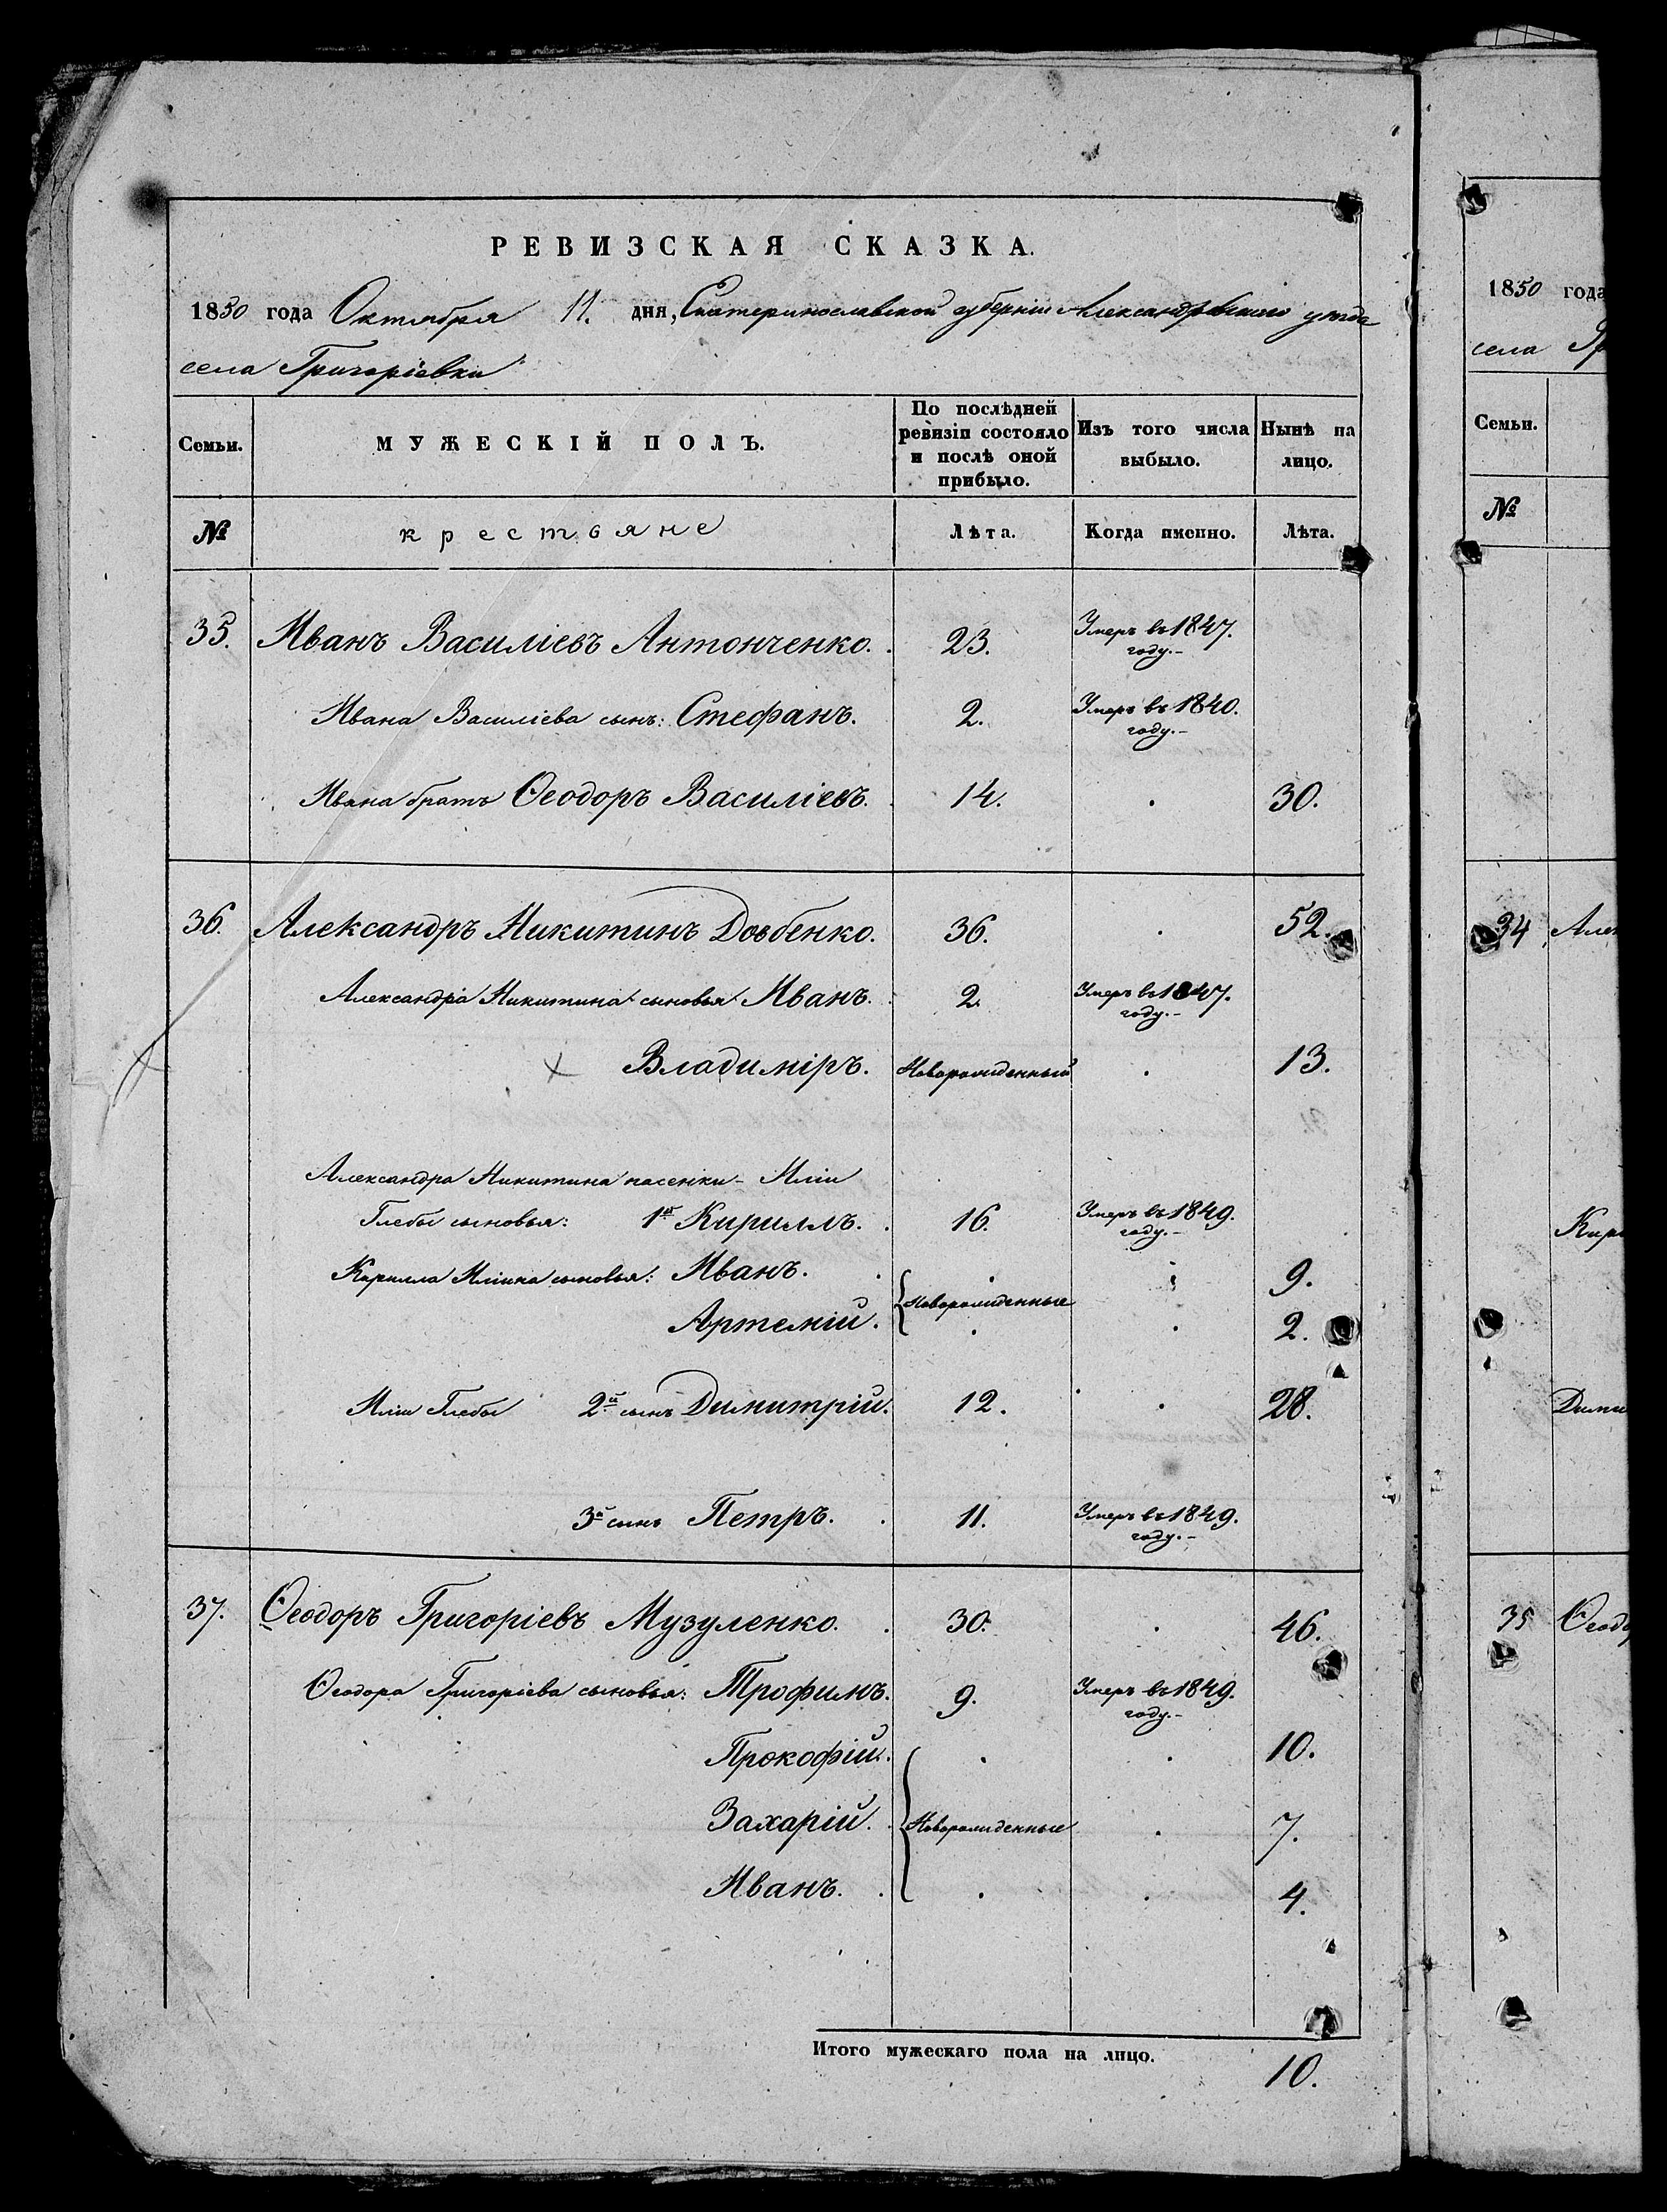 РЕВИЗСКАЯ СКАЗКА.
1850 года Октября 11. дня, Екатеринославской губерніи Александровскаго уѣзда
села Григоріевки
Семьи.
МУЖЕСКІЙ ПОЛЪ.
По послѣдней
ревизіи состояло
и послѣ оной
прибыло.
Изъ того числа
выбыло.
Нынѣ на
лицо.
№
крестьяне
Лѣта.
Когда именно.
Лѣта.
35. Иванъ Василіевъ Антонченко. 23. Умеръ въ 1847.
году.-
Ивана Василіева сынъ: Стефанъ. 2. Умеръ въ 1840.
году.-
Ивана братъ Ѳеодоръ Василіевъ. 14. 30.
36. Александръ Никитинъ Довбенко. 36. 52.
Александра Никитина сыновья Иванъ. 2. Умеръ въ 1847.
году.-
Владиміръ. Новорожденный 13.
Александра Никитина пасенки - Иліи
Глебы сыновья: 1й Кириллъ. 16. Умеръ въ 1849.
году.-
Кирилла Иліина сыновья: Иванъ. 9.
Новорожденные
Артемій. 2.
Иліи Глебы 2й сынъ Димитрій. 12. 28.
3й сынъ Петръ. 11. Умеръ въ 1849.
году.-
37. Ѳеодоръ Григоріевъ Музуленко. 30. 46.
Ѳеодора Григоріева сыновья: Трофимъ. 9. Умеръ въ 1849.
году.-
Прокофій. 10.
Захарій. Новорожденные 7.
Иванъ. 4.
Итого мужескаго пола на лицо. 10.
1850 года
села Гр
Семьи.
№
34 Алек
Кири
Дими
35 Ѳеодо